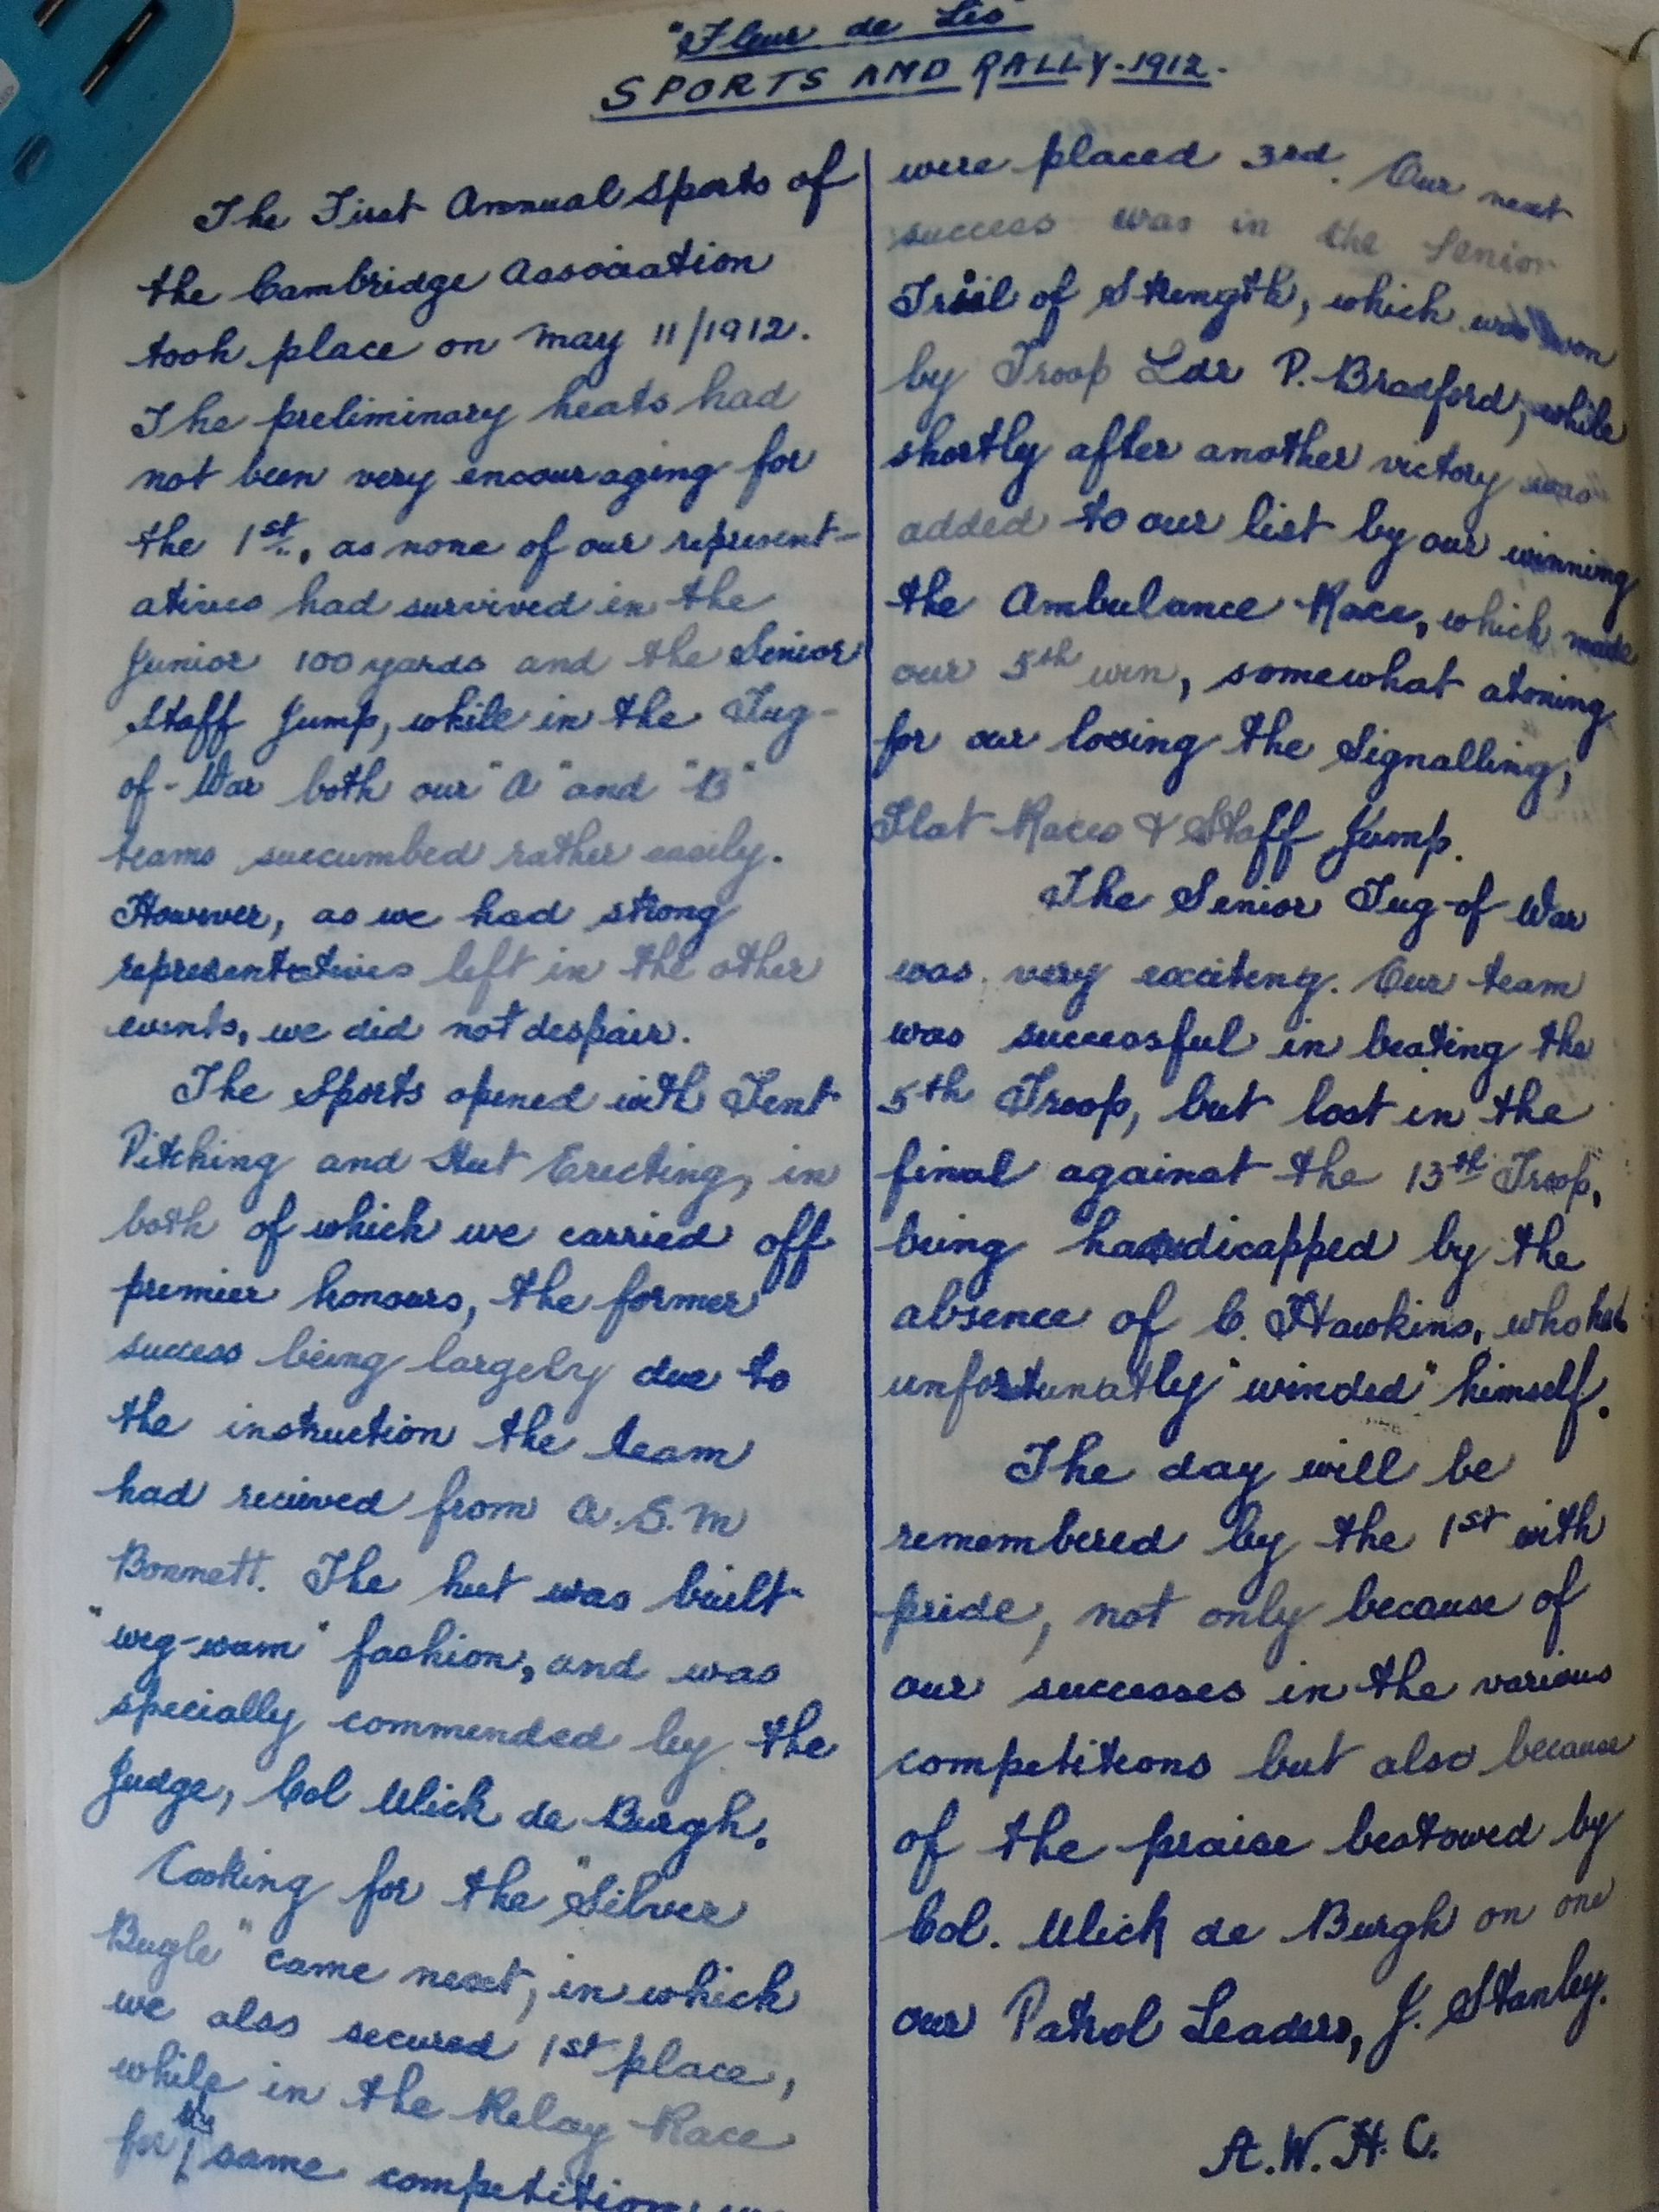 "Fleur de Lis"
SPORTS AND RALLY-1912.
The First Annual Sports of
the Cambridge Association
took place on May 11/1912.
The preliminary heats had
not been very encouraging for
the 1st., as none of our represent-
atives had survived in the
Junior 100 yards and the Senior
Staff Jump, while in the Tug-
of-War both our "A" and "B"
teams succumbed rather easily.
However, as we had strong
representatives left in the other
events, we did not despair.
The Sports opened with Tent
Pitching and Hut Erecting, in
both of which we carried off
premier honours, the former
success being largely due to
the instruction the team
had recieved from A.S.M
Bonnett. The hut was built
"wig-wam" fashion, and was
specially commended by the
Judge, Col Ulick de Burgh.
Cooking for the "Silver
Bugle" came next, in which
we also secured 1st place,
while in the Relay Race
for the same competition, we
were placed 3rd. Our next
success was in the Senior
Trial of Strength, which was won
by Troop Ldr P. Bradford, while
shortly after another victory was
added to our list by our winning
the Ambulance Race, which made
our 5th win, somewhat atoning
for our losing the Signalling,
Flat Races & Staff Jump.
The Senior Tug-of-War
was very exciting. Our team
was successful in beating the
5th Troop, but lost in the
final against the 13th Troop,
being handicapped by the
absence of C. Hawkins, who had
unfortunatly "winded" himself.
The day will be
remembered by the 1st with
pride, not only because of
our successes in the various
competitions but also because
of the praise bestowed by
Col. Ulick de Burgh on one
our Patrol Leaders, J. Stanley.
A.W.H.C.